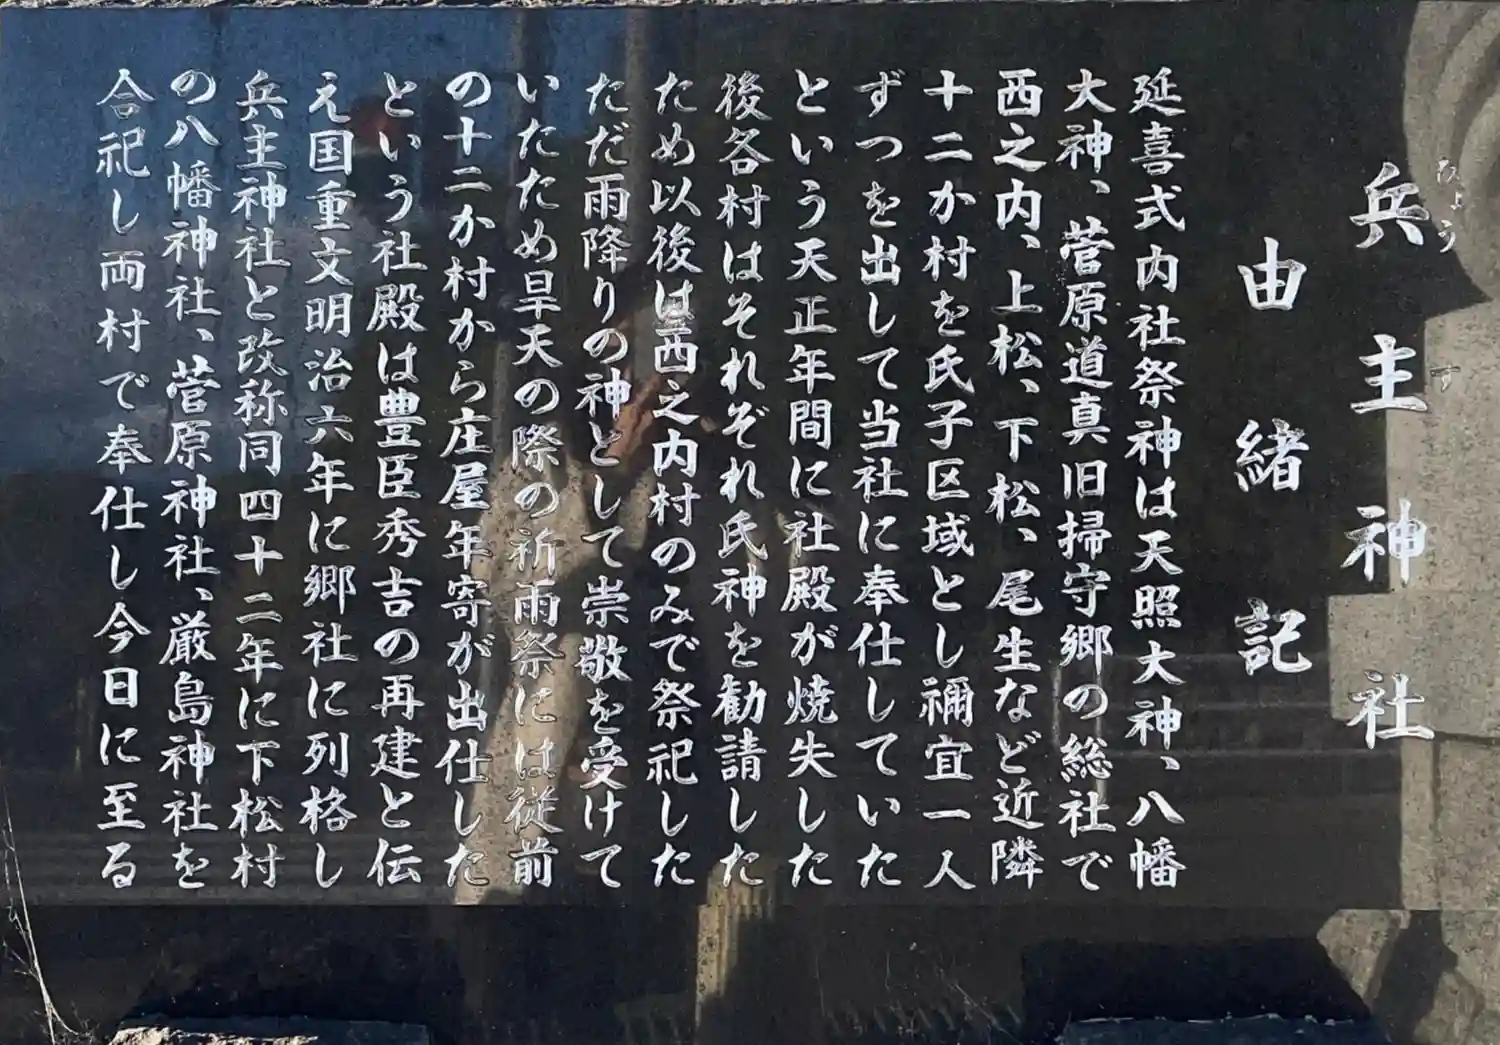 兵主神社
ひょうす
由緒記
延喜式内社祭神は天照大神、八幡
大神、菅原道真旧掃守郷の総社で
西之内、上松、下松、尾生など近隣
十二か村を氏子区域とし禰宜一人
ずつを出して当社に奉仕していた
という天正年間に社殿が焼失した
後各村はそれぞれ氏神を勧請した
ため以後は西之内村のみで祭祀した
ただ雨降りの神として崇敬を受けて
いたため旱天の際の祈雨祭には従前
の十二か村から庄屋年寄が出仕した
という社殿は豊臣秀吉の再建と伝
え国重文明治六年に郷社に列格し
兵主神社と改称同四十二年に下松村
の八幡神社、菅原神社、厳島神社を
合祀し両村で奉仕し今日に至る